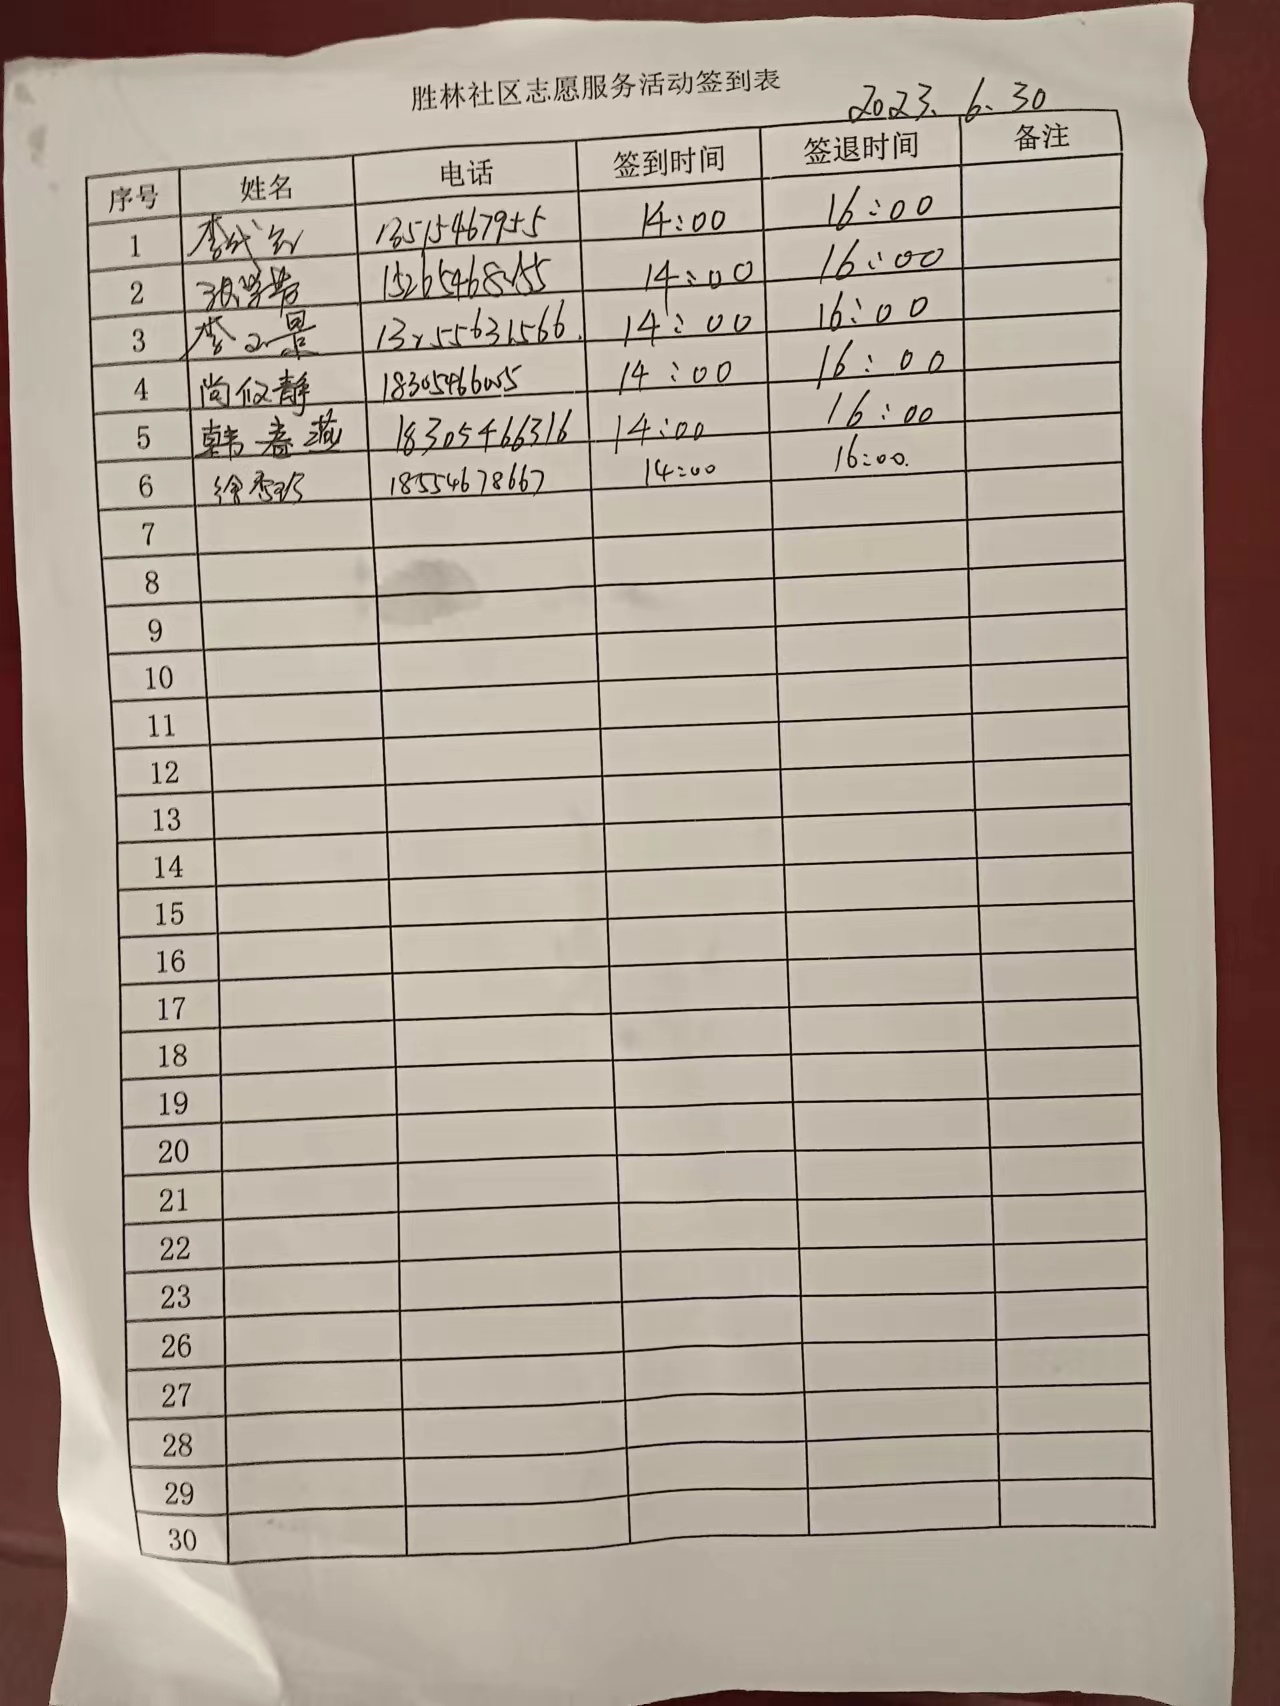 胜林社区志愿服务活动签到表
2023.6.30
序号 姓名 电话 签到时间 签退时间 备注
1 13515467955 14:00 16:00
2 14:00 16:00
3 14:00 16:00
4 14:00 16:00
5 韩春燕 18305466316 14:00 16:00
6 18554678667 14:00 16:00.
7
8
9
10
11
12
13
14
15
16
17
18
19
20
21
22
23
26
27
28
29
30